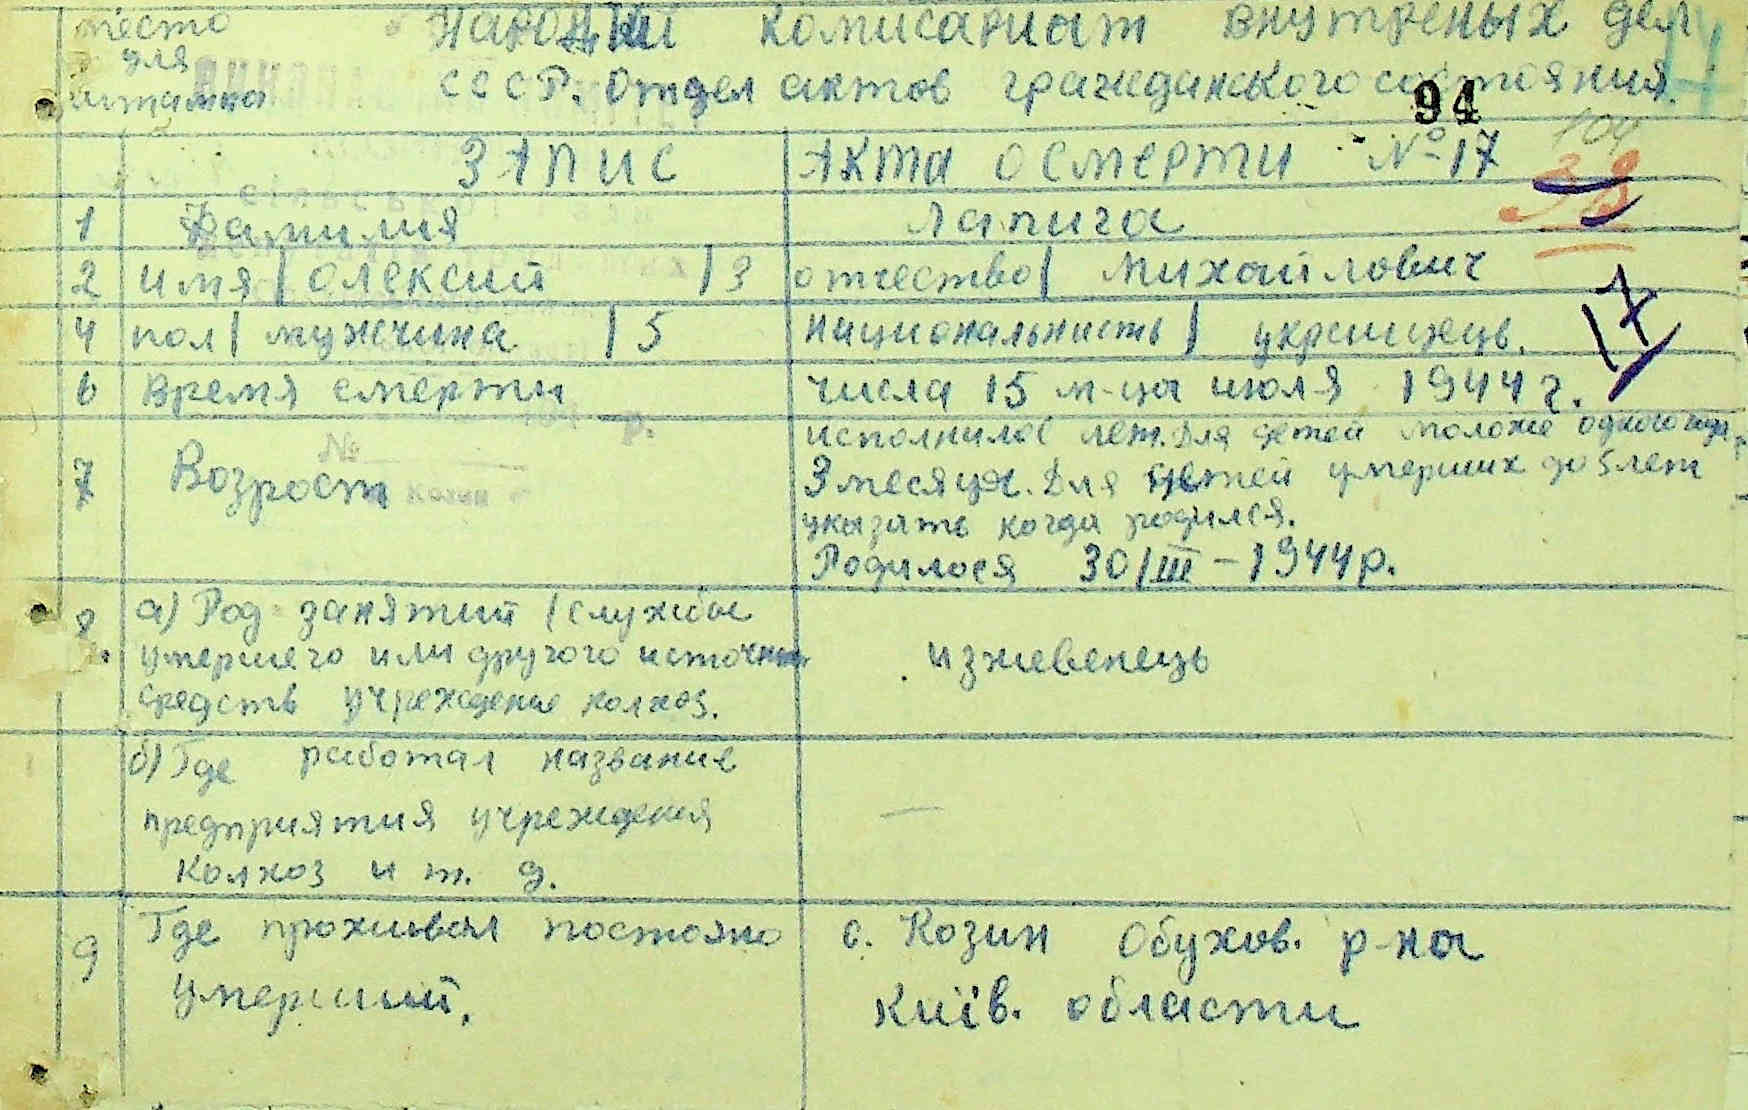 место
для
штампа
Народный комисариат внутреных дел
СССР. Отдел актов гражданского состояния.
94
104
ЗАПИС Акта о смерти № 17
38
1 Фамилия Лапига
2 имя | Олексий | 3 отчество | Михайлович
17
4 пол | мужчина | 5 национальность | украинець.
6 Время смерти числа 15 м-ца июля 1944 г.
7 Возраст
исполнилос лет. Для детей моложе одного года
3 месяця. Для детей умерших до 5 лет
указать когда родился.
Родилося 30/III - 1944 р.
№
Козин
8. а) Род занятий (службы
умершего или другого источник
средств учреждение колхоз.
изжевенець
б) Где работал название
предприятия учреждения
колхоз и т. д.
—
9 Где проживал постояно
умерший.
с. Козин Обухов. р-на
Київ. области